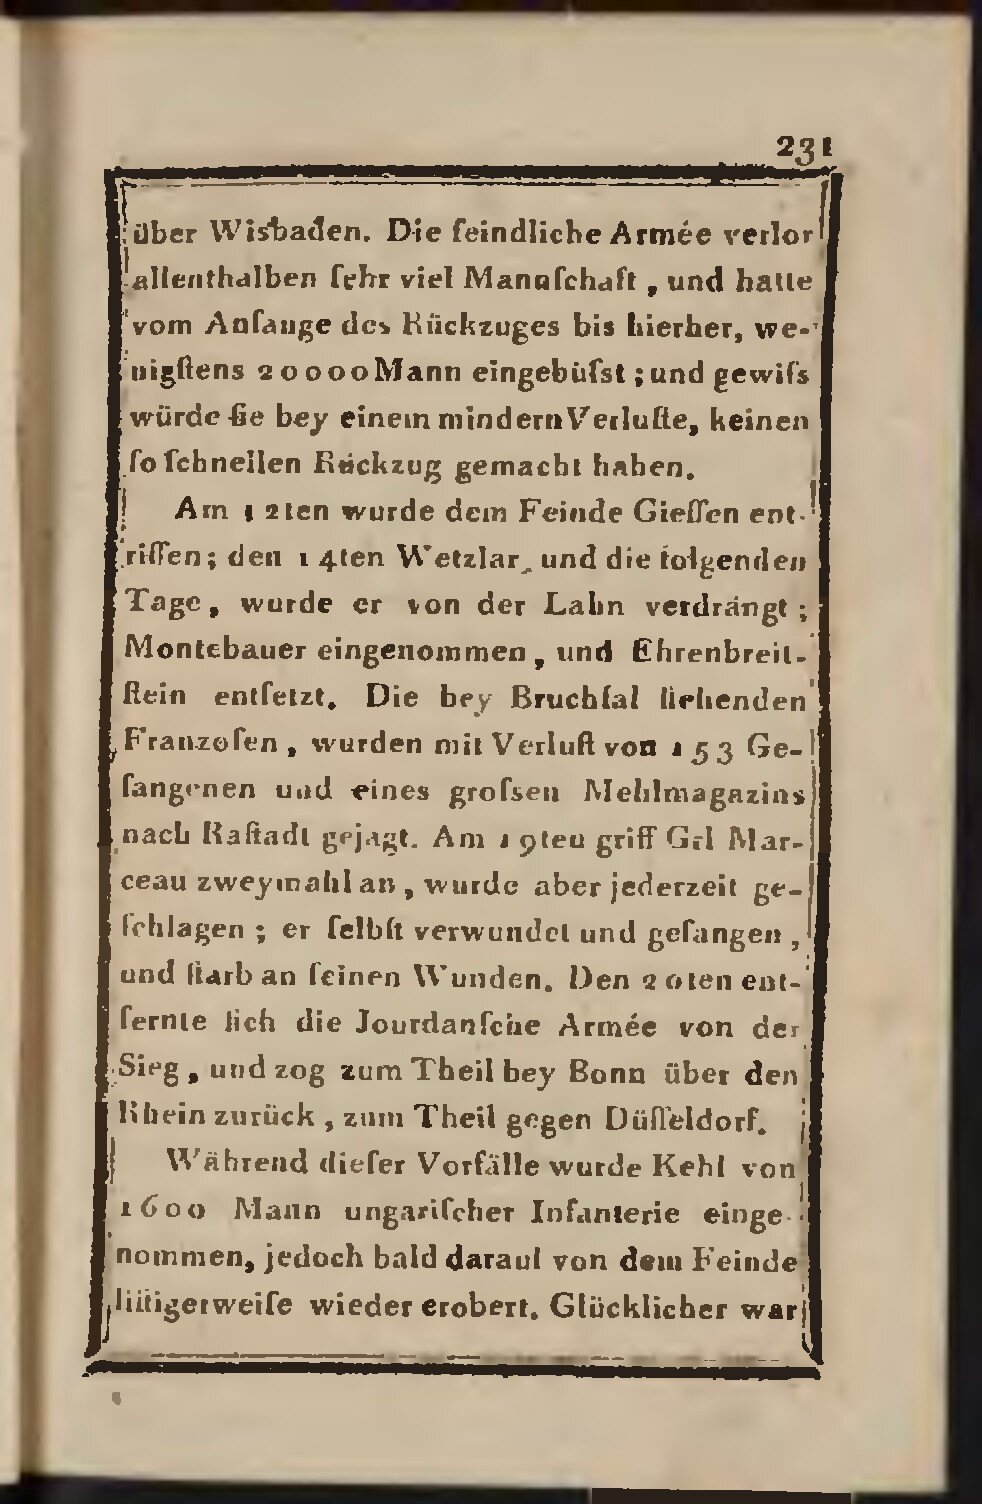 231
über Wisbaden. Die feindliche Armée verlor
allenthalben ſehr viel Mannſchaft, und hatte
vom Anfange des Rückzuges bis hierher, we-
nigſtens 20000 Mann eingebüſst; und gewiſs
würde ſie bey einem mindern Verluſte, keinen
ſo ſchnellen Rückzug gemacht haben.
Am 12ten wurde dem Feinde Gieſſen ent-
riſſen; den 14ten Wetzlar, und die folgenden
Tage, wurde er von der Lahn verdrängt;
Montebauer eingenommen, und Ehrenbreit-
ſtein entſetzt. Die bey Bruchſal ſtehenden
Franzoſen, wurden mit Verluſt von 153 Ge-
fangenen und eines groſsen Mehlmagazins
nach Raſtadt gejagt. Am 19ten griff Grl Mar-
ceau zweymahl an, wurde aber jederzeit ge-
ſchlagen; er ſelbſt verwundet und gefangen,
und ſtarb an ſeinen Wunden. Den 20ten ent-
fernte ſich die Jourdanſche Armée von der
Sieg, und zog zum Theil bey Bonn über den
Rhein zurück, zum Theil gegen Düſſeldorf.
Während dieſer Vorfälle wurde Kehl von
1600 Mann ungariſcher Infanterie einge-
nommen, jedoch bald darauf von dem Feinde
liſtigerweiſe wieder erobert. Glücklicher war